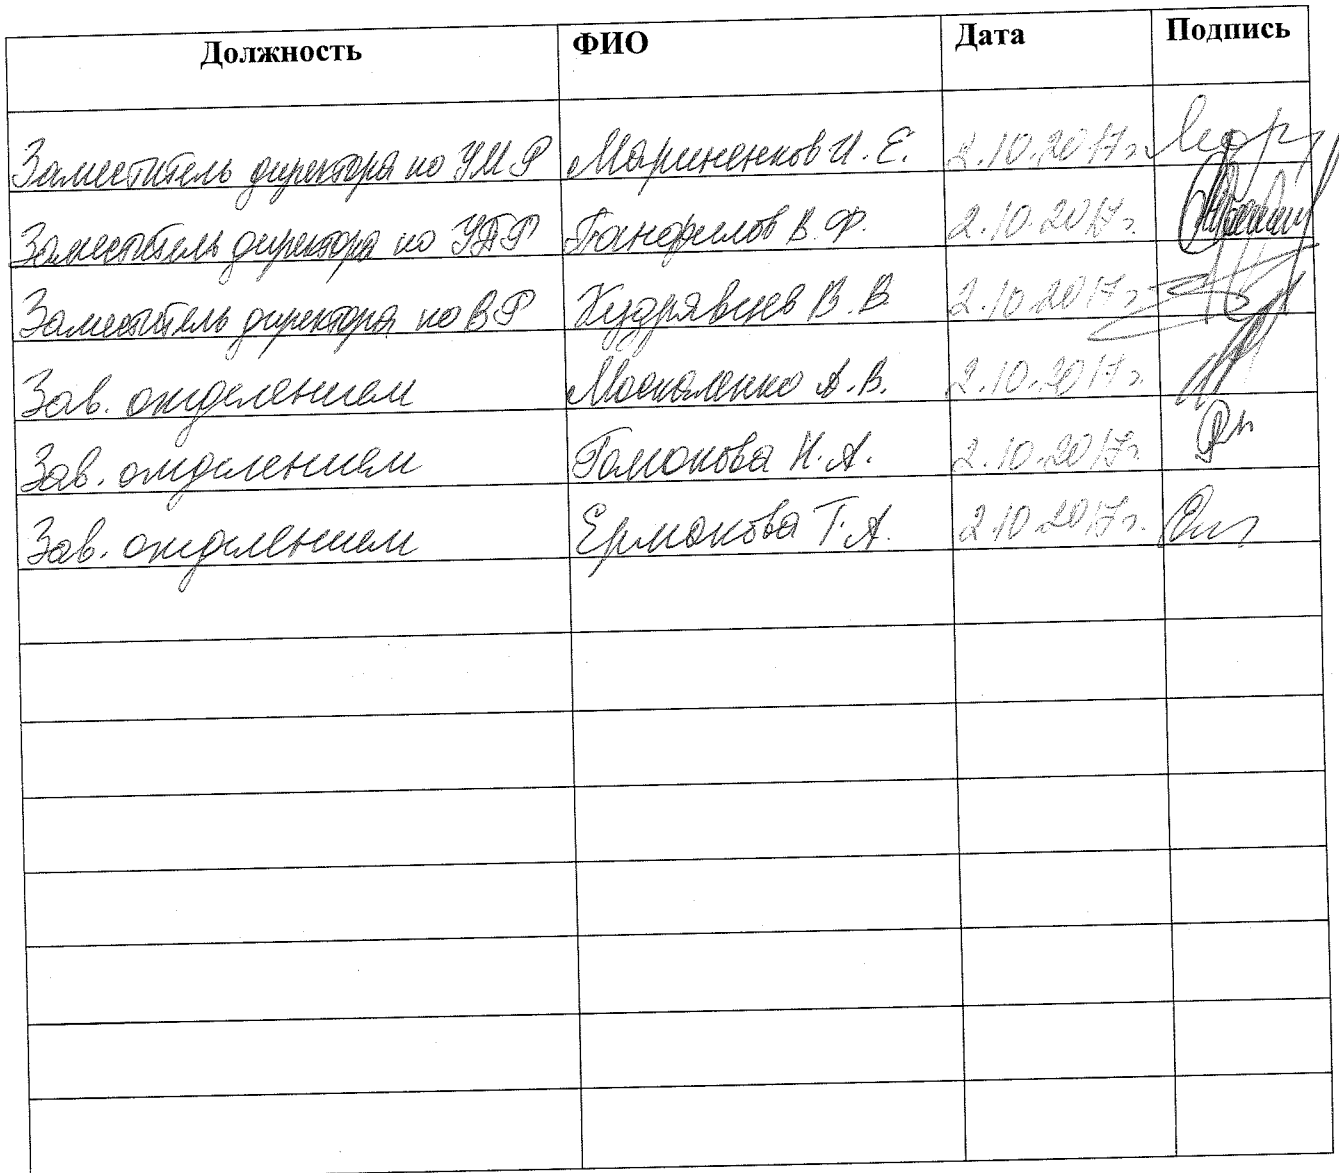 Должность ФИО Дата Подпись
Заместитель директора по УМР Мариненков И. Е. 2.10.2017г.
Заместитель директора по УПР Панфилов В. Ф. 2.10.2017г.
Заместитель директора по ВР Кудрявцев В. В 2.10.2017г
Зав. отделением Москаленко А. В. 2.10.2017г.
Зав. отделением Н. А. 2.10.2017г.
Зав. отделением Ермакова Т. А. 2.10.2017г.